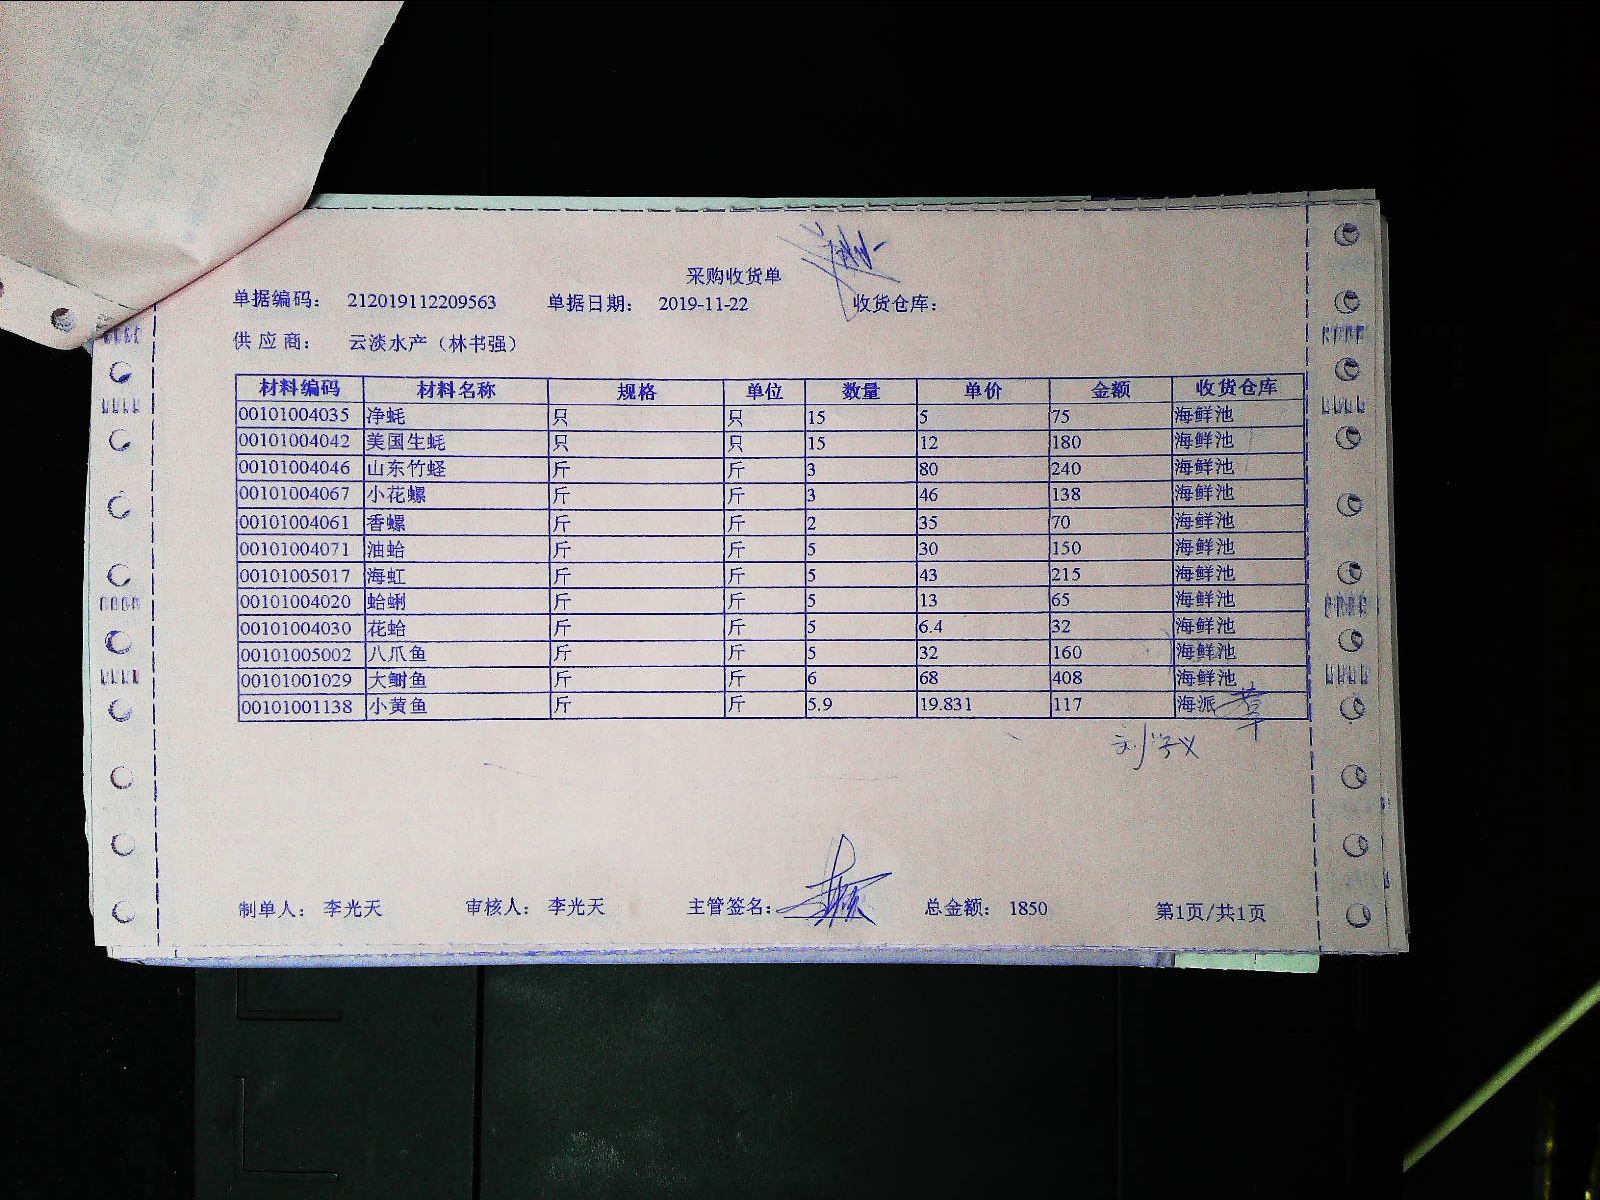 采购收货单
单据编码： 212019112209563 单据日期： 2019-11-22 收货仓库：
供应商： 云淡水产（林书强）
材料编码 材料名称 规格 单位 数量 单价 金额 收货仓库
00101004035 净蚝 只 只 15 5 75 海鲜池
00101004042 美国生蚝 只 只 15 12 180 海鲜池
00101004046 山东竹蛏 斤 斤 3 80 240 海鲜池
00101004067 小花螺 斤 斤 3 46 138 海鲜池
00101004061 香螺 斤 斤 2 35 70 海鲜池
00101004071 油蛤 斤 斤 5 30 150 海鲜池
00101005017 海虹 斤 斤 5 43 215 海鲜池
00101004020 蛤蜊 斤 斤 5 13 65 海鲜池
00101004030 花蛤 斤 斤 5 6.4 32 海鲜池
00101005002 八爪鱼 斤 斤 5 32 160 海鲜池
00101001029 大鲥鱼 斤 斤 6 68 408 海鲜池
00101001138 小黄鱼 斤 斤 5.9 19.831 117 海派
制单人： 李光天 审核人： 李光天 主管签名： 总金额： 1850 第1页/共1页